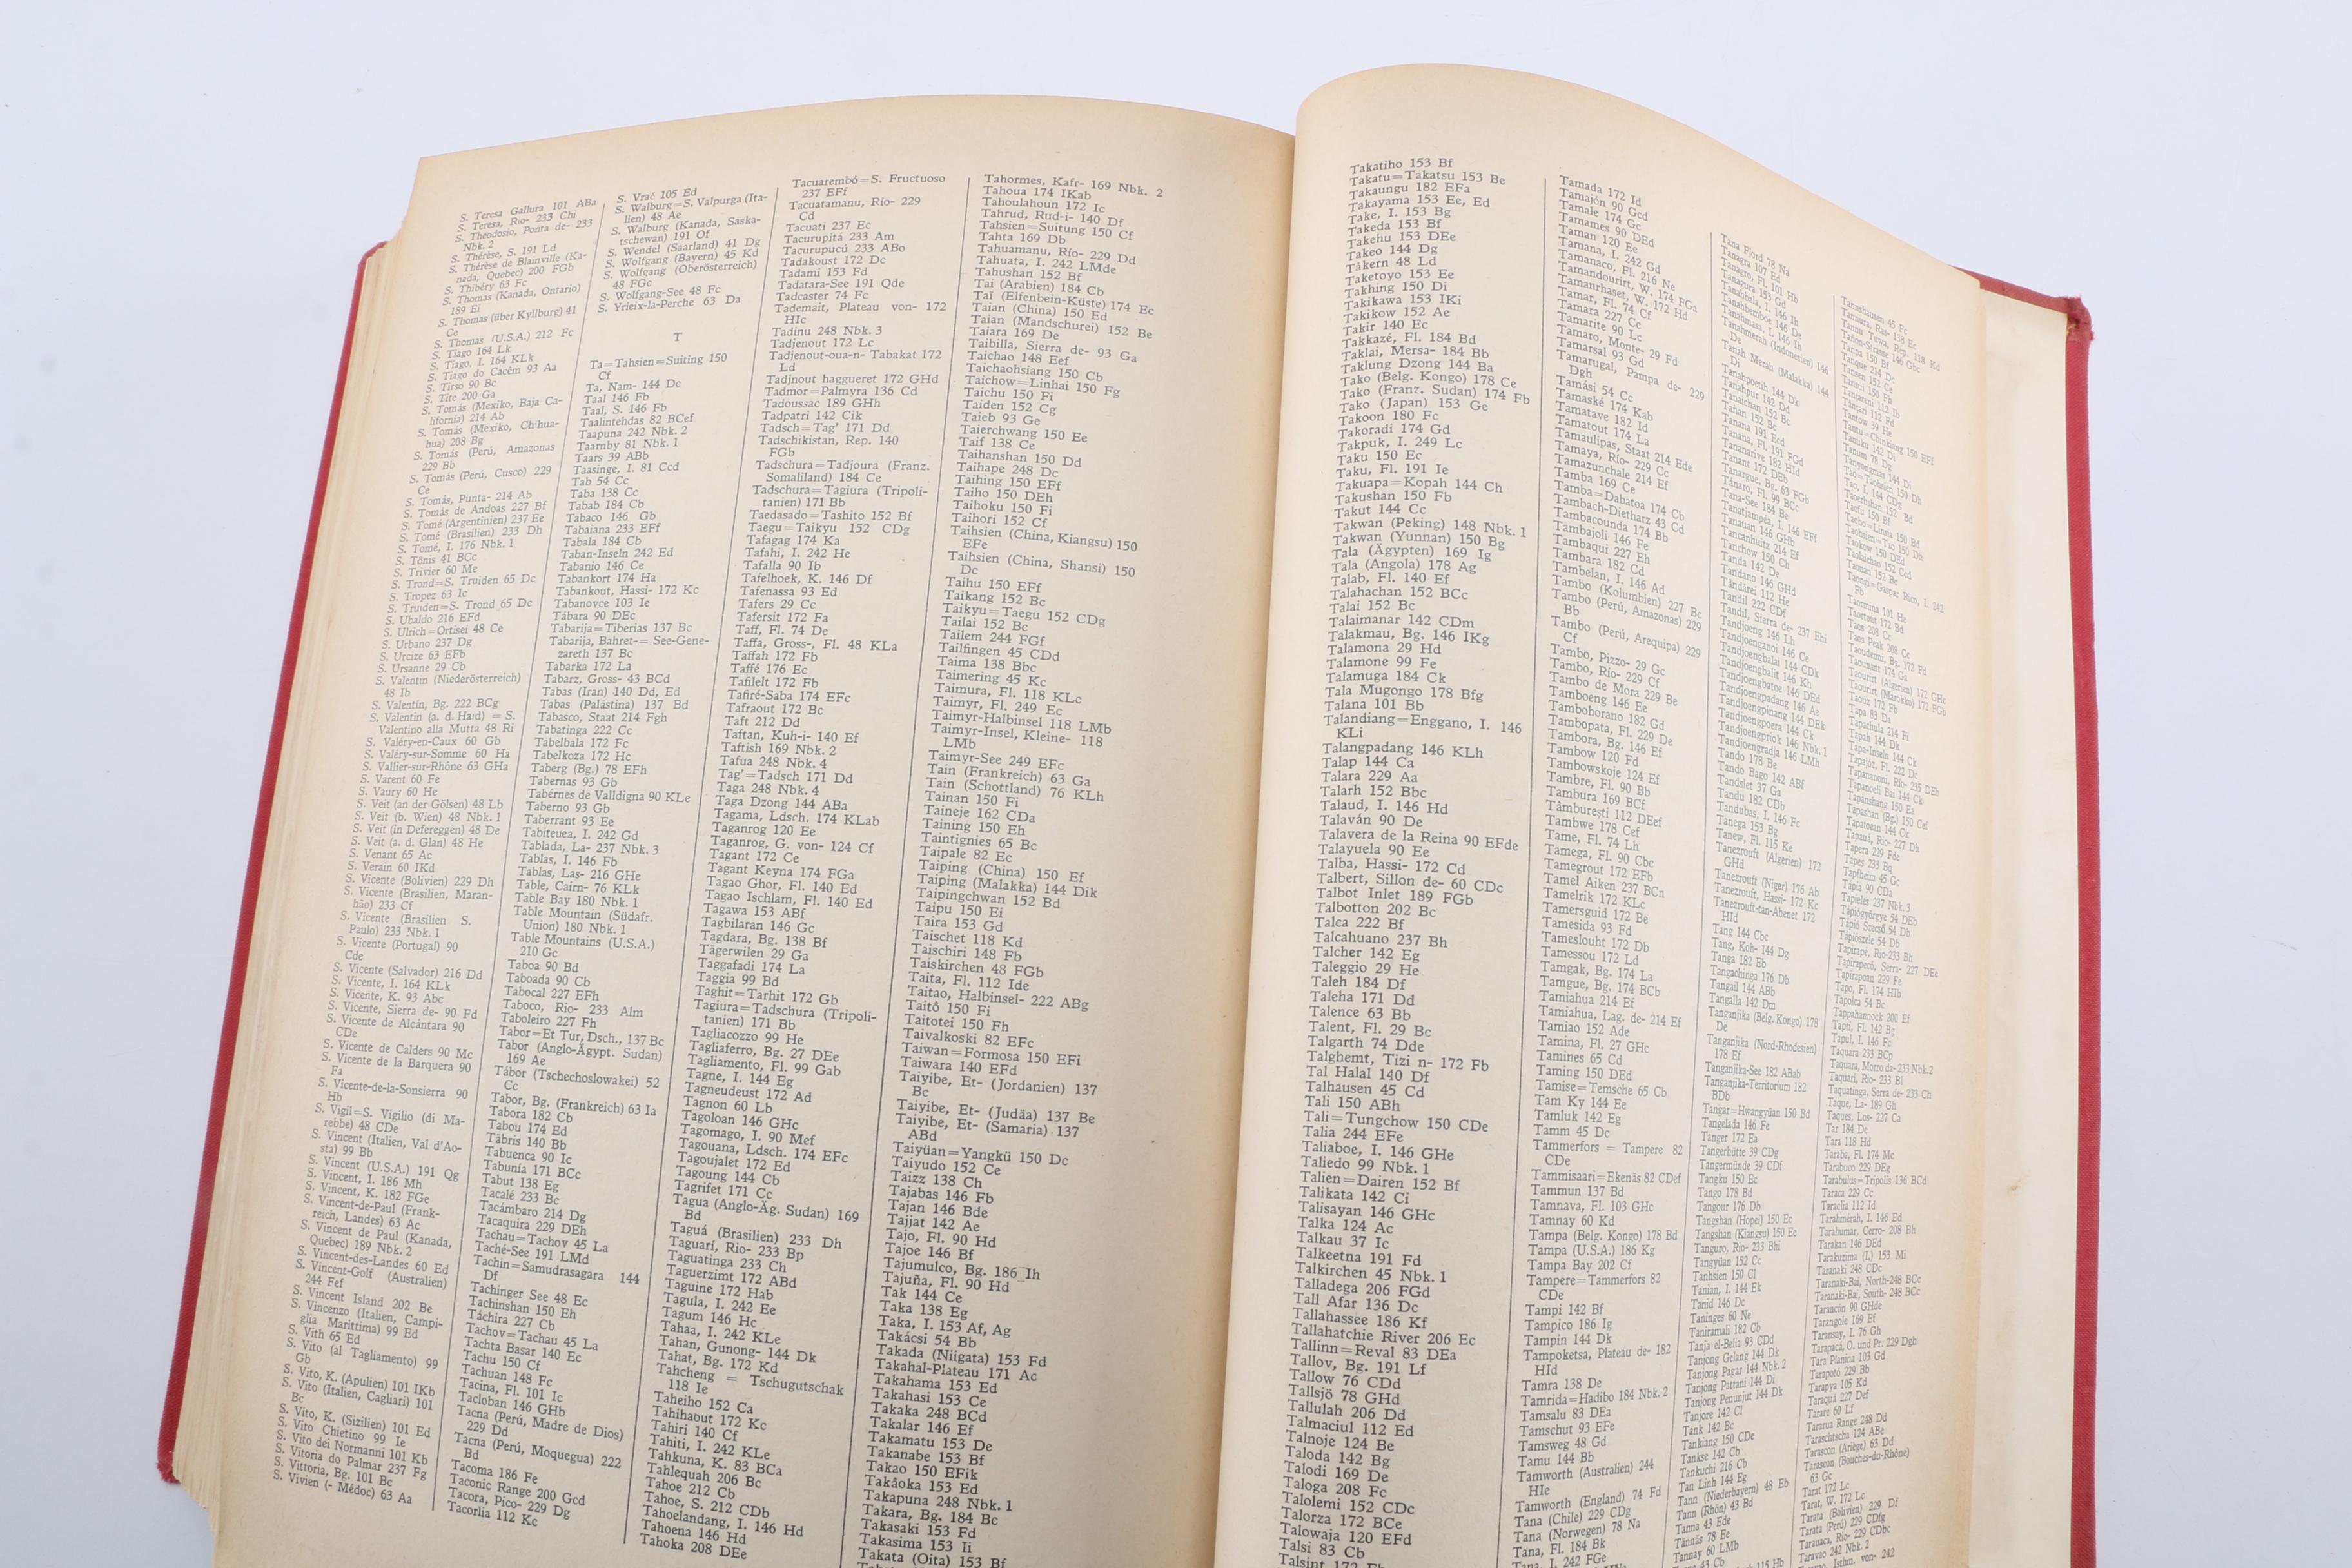 S. Teresa Gallura 101 ABa
S. Teresa, Rio- 233 Chi
S. Theodosio, Ponta de- 233
Nbk. 2
S. Thérèse, S. 191 Ld
S. Thérèse de Blainville (Ka-
nada, Quebec) 200 FGb
S. Thibéry 63 Fc
S. Thomas (Kanada, Ontario)
189 Ei
S. Thomas (über Kyllburg) 41
Ce
S. Thomas (U.S.A.) 212 Fc
S. Tiago 164 Lk
S. Tiago, I. 164 KLk
S. Tiago do Cacêm 93 Aa
S. Tirso 90 Bc
S. Tite 200 Ga
S. Tomás (Mexiko, Baja Ca-
lifornia) 214 Ab
S. Tomás (Mexiko, Chihua-
hua) 208 Bg
S. Tomás (Perú, Amazonas
229 Bb
S. Tomás (Perú, Cusco) 229
Ce
S. Tomás, Punta- 214 Ab
S. Tomás de Andoas 227 Bf
S. Tomé (Argentinien) 237 Ee
S. Tomé (Brasilien) 233 Dh
S. Tomé, I. 176 Nbk. 1
S. Tönis 41 BCc
S. Trivier 60 Me
S. Trond=S. Truiden 65 Dc
S. Tropez 63 Ic
S. Truiden=S. Trond 65 Dc
S. Ubaldo 216 EFd
S. Ulrich=Ortisei 48 Ce
S. Urbano 237 Dg
S. Urcize 63 EFb
S. Ursanne 29 Cb
S. Valentin (Niederösterreich)
48 Ib
S. Valentín, Bg. 222 BCg
S. Valentin (a. d. Haid) = S.
Valentino alla Mutta 48 Ri
S. Valéry-en-Caux 60 Gb
S. Valéry-sur-Somme 60 Ha
S. Vallier-sur-Rhône 63 GHa
S. Varent 60 Fe
S. Vaury 60 He
S. Veit (an der Gölsen) 48 Lb
S. Veit (b. Wien) 48 Nbk. 1
S. Veit (in Defereggen) 48 De
S. Veit (a. d. Glan) 48 He
S. Venant 65 Ac
S. Verain 60 IKd
S. Vicente (Bolivien) 229 Dh
S. Vicente (Brasilien, Maran-
hão) 233 Cf
S. Vicente (Brasilien S.
Paulo) 233 Nbk. 1
S. Vicente (Portugal) 90
Cde
S. Vicente (Salvador) 216 Dd
S. Vicente, I. 164 KLk
S. Vicente, K. 93 Abc
S. Vicente, Sierra de- 90 Fd
S. Vicente de Alcántara 90
CDe
S. Vicente de Calders 90 Mc
S. Vicente de la Barquera 90
Fa
S. Vicente-de-la-Sonsierra 90
Hb
S. Vigil=S. Vigilio (di Ma-
rebbe) 48 CDe
S. Vincent (Italien, Val d'Ao-
sta) 99 Bb
S. Vincent (U.S.A.) 191 Qg
S. Vincent, I. 186 Mh
S. Vincent, K. 182 FGe
S. Vincent-de-Paul (Frank-
reich, Landes) 63 Ac
S. Vincent de Paul (Kanada,
Quebec) 189 Nbk. 2
S. Vincent-des-Landes 60 Ed
S. Vincent-Golf (Australien)
244 Fef
S. Vincent Island 202 Be
S. Vincenzo (Italien, Campi-
glia Marittima) 99 Ed
S. Vith 65 Ed
S. Vito (al Tagliamento) 99
Gb
S. Vito, K. (Apulien) 101 IKb
S. Vito (Italien, Cagliari) 101
Bc
S. Vito, K. (Sizilien) 101 Ed
S. Vito Chietino 99 Ie
S. Vito dei Normanni 101 Kb
S. Vitoria do Palmar 237 Fg
S. Vittoria, Bg. 101 Bc
S. Vivien (- Médoc) 63 Aa
S. Vrač 105 Ed
S. Walburg=S. Valpurga (Ita-
lien) 48 Ae
S. Walburg (Kanada, Saska-
tschewan) 191 Of
S. Wendel (Saarland) 41 Dg
S. Wolfgang (Bayern) 45 Kd
S. Wolfgang (Oberösterreich)
48 FGc
S. Wolfgang-See 48 Fc
S. Yrieix-la-Perche 63 Da
T
Ta=Tahsien=Suiting 150
Cf
Ta, Nam- 144 Dc
Taal 146 Fb
Taal, S. 146 Fb
Taalintehdas 82 BCef
Taapuna 242 Nbk. 2
Taarnby 81 Nbk. 1
Taars 39 ABb
Taasinge, I. 81 Ccd
Tab 54 Cc
Taba 138 Cc
Tabab 184 Cb
Tabaco 146 Gb
Tabaiana 233 EFf
Tabala 184 Cb
Taban-Inseln 242 Ed
Tabanio 146 Ce
Tabankort 174 Ha
Tabankout, Hassi- 172 Kc
Tabanovce 103 Ie
Tábara 90 DEc
Tabarija=Tiberias 137 Bc
Tabarija, Bahret-= See-Gene-
zareth 137 Bc
Tabarka 172 La
Tabarz, Gross- 43 BCd
Tabas (Iran) 140 Dd, Ed
Tabas (Palästina) 137 Bd
Tabasco, Staat 214 Fgh
Tabatinga 222 Cc
Tabelbala 172 Fc
Tabelkoza 172 Hc
Taberg (Bg.) 78 EFh
Tabernas 93 Gb
Tabérnes de Valldigna 90 KLe
Taberno 93 Gb
Taberrant 93 Ee
Tabiteuea, I. 242 Gd
Tablada, La- 237 Nbk. 3
Tablas, I. 146 Fb
Tablas, Las- 216 GHe
Table, Cairn- 76 KLk
Table Bay 180 Nbk. 1
Table Mountain (Südafr.
Union) 180 Nbk. 1
Table Mountains (U.S.A.)
210 Gc
Taboa 90 Bd
Taboada 90 Cb
Tabocal 227 EFh
Taboco, Rio- 233 Alm
Taboleiro 227 Fh
Tabor=Et Tur, Dsch., 137 Bc
Tabor (Anglo-Ägypt. Sudan)
169 Ae
Tábor (Tschechoslowakei) 52
Cc
Tabor, Bg. (Frankreich) 63 Ia
Tabora 182 Cb
Tabou 174 Ed
Täbris 140 Bb
Tabuenca 90 Ic
Tabunía 171 BCc
Tabut 138 Eg
Tacalé 233 Bc
Tacámbaro 214 Dg
Tacaquira 229 DEh
Tachau=Tachov 45 La
Taché-See 191 LMd
Tachin=Samudrasagara 144
Df
Tachinger See 48 Ec
Tachinshan 150 Eh
Táchira 227 Cb
Tachov=Tachau 45 La
Tachta Basar 140 Ec
Tachu 150 Cf
Tachuan 148 Fc
Tacina, Fl. 101 Ic
Tacloban 146 GHb
Tacna (Perú, Madre de Dios)
229 Dd
Tacna (Perú, Moquegua) 222
Bd
Tacoma 186 Fe
Taconic Range 200 Gcd
Tacora, Pico- 229 Dg
Tacorlia 112 Kc
Tacuarembó=S. Fructuoso
237 EFf
Tacuatamanu, Río- 229
Cd
Tacuatí 237 Ec
Tacurupitá 233 Am
Tacurupucú 233 ABo
Tadakoust 172 Dc
Tadami 153 Fd
Tadatara-See 191 Qde
Tadcaster 74 Fc
Tademaït, Plateau von- 172
HIc
Tadinu 248 Nbk. 3
Tadjenout 172 Lc
Tadjenout-oua-n- Tabakat 172
Ld
Tadjnout haggueret 172 GHd
Tadmor=Palmyra 136 Cd
Tadoussac 189 GHh
Tadpatri 142 Cik
Tadsch=Tag' 171 Dd
Tadschikistan, Rep. 140
FGb
Tadschura=Tadjoura (Franz.
Somaliland) 184 Ce
Tadschura=Tagiura (Tripoli-
tanien) 171 Bb
Taedasado=Tashito 152 Bf
Taegu=Taikyu 152 CDg
Tafagag 174 Ka
Tafahi, I. 242 He
Tafalla 90 Ib
Tafelhoek, K. 146 Df
Tafenassa 93 Ed
Tafers 29 Cc
Tafersit 172 Fa
Taff, Fl. 74 De
Taffa, Gross-, Fl. 48 KLa
Taffah 172 Fb
Taffé 176 Ec
Tafilelt 172 Fb
Tafiré-Saba 174 EFc
Tafraout 172 Bc
Taft 212 Dd
Taftan, Kuh-i- 140 Ef
Taftish 169 Nbk. 2
Tafua 248 Nbk. 4
Tag'=Tadsch 171 Dd
Taga 248 Nbk. 4
Taga Dzong 144 ABa
Tagama, Ldsch. 174 KLab
Taganrog 120 Ee
Taganrog, G. von- 124 Cf
Tagant 172 Ce
Tagant Keyna 174 FGa
Tagao Ghor, Fl. 140 Ed
Tagao Ischlam, Fl. 140 Ed
Tagawa 153 ABf
Tagbilaran 146 Gc
Tagdara, Bg. 138 Bf
Tägerwilen 29 Ga
Taggafadi 174 La
Taggia 99 Bd
Taghit=Tarhit 172 Gb
Tagiura=Tadschura (Tripoli-
tanien) 171 Bb
Tagliacozzo 99 He
Tagliaferro, Bg. 27 DEe
Tagliamento, Fl. 99 Gab
Tagne, I. 144 Eg
Tagneudeust 172 Ad
Tagnon 60 Lb
Tagoloan 146 GHc
Tagomago, I. 90 Mef
Tagouana, Ldsch. 174 EFc
Tagoujalet 172 Ed
Tagoung 144 Cb
Tagrifet 171 Cc
Tagua (Anglo-Äg. Sudan) 169
Bd
Taguá (Brasilien) 233 Dh
Taguarí, Rio- 233 Bp
Taguatinga 233 Ch
Taguerzimt 172 ABd
Taguine 172 Hab
Tagula, I. 242 Ee
Tagum 146 Hc
Tahaa, I. 242 KLe
Tahan, Gunong- 144 Dk
Tahat, Bg. 172 Kd
Tahcheng = Tschugutschak
118 Ie
Taheiho 152 Ca
Tahihaout 172 Kc
Tahiri 140 Cf
Tahiti, I. 242 KLe
Tahkuna, K. 83 BCa
Tahlequah 206 Bc
Tahoe 212 Cb
Tahoe, S. 212 CDb
Tahoelandang, I. 146 Hd
Tahoena 146 Hd
Tahoka 208 DEe
Tahormes, Kafr- 169 Nbk. 2
Tahoua 174 IKab
Tahoulahoun 172 Ic
Tahrud, Rud-i- 140 Df
Tahsien=Suitung 150 Cf
Tahta 169 Db
Tahuamanu, Río- 229 Dd
Tahuata, I. 242 LMde
Tahushan 152 Bf
Tai (Arabien) 184 Cb
Taï (Elfenbein-Küste) 174 Ec
Taian (China) 150 Ed
Taian (Mandschurei) 152 Be
Taiara 169 De
Taibilla, Sierra de- 93 Ga
Taichao 148 Eef
Taichaohsiang 150 Cb
Taichow=Linhai 150 Fg
Taichu 150 Fi
Taiden 152 Cg
Taieb 93 Ge
Taierchwang 150 Ee
Taif 138 Ce
Taihanshan 150 Dd
Taihape 248 Dc
Taihing 150 EFf
Taiho 150 DEh
Taihoku 150 Fi
Taihori 152 Cf
Taihsien (China, Kiangsu) 150
EFe
Taihsien (China, Shansi) 150
Dc
Taihu 150 EFf
Taikang 152 Bc
Taikyu=Taegu 152 CDg
Tailai 152 Bc
Tailem 244 FGf
Tailfingen 45 CDd
Taima 138 Bbc
Taimering 45 Kc
Taimura, Fl. 118 KLc
Taimyr, Fl. 249 Ec
Taimyr-Halbinsel 118 LMb
Taimyr-Insel, Kleine- 118
LMb
Taimyr-See 249 EFc
Tain (Frankreich) 63 Ga
Tain (Schottland) 76 KLh
Tainan 150 Fi
Taineje 162 CDa
Taining 150 Eh
Taintignies 65 Bc
Taipale 82 Ec
Taiping (China) 150 Ef
Taiping (Malakka) 144 Dik
Taipingchwan 152 Bd
Taipu 150 Ei
Taira 153 Gd
Taischet 118 Kd
Taischiri 148 Fb
Taiskirchen 48 FGb
Taita, Fl. 112 Ide
Taitao, Halbinsel- 222 ABg
Taitô 150 Fi
Taitotei 150 Fh
Taivalkoski 82 EFc
Taiwan=Formosa 150 EFi
Taiwara 140 EFd
Taiyibe, Et- (Jordanien) 137
Bc
Taiyibe, Et- (Judäa) 137 Be
Taiyibe, Et- (Samaria) 137
ABd
Taiyüan=Yangkü 150 Dc
Taiyudo 152 Ce
Taizz 138 Ch
Tajabas 146 Fb
Tajan 146 Bde
Tajjat 142 Ae
Tajo, Fl. 90 Hd
Tajoe 146 Bf
Tajumulco, Bg. 186 Ih
Tajuña, Fl. 90 Hd
Tak 144 Ce
Taka 138 Eg
Taka, I. 153 Af, Ag
Takácsi 54 Bb
Takada (Niigata) 153 Fd
Takahal-Plateau 171 Ac
Takahama 153 Ed
Takahasi 153 Ce
Takaka 248 BCd
Takalar 146 Ef
Takamatu 153 De
Takanabe 153 Bf
Takao 150 EFik
Takâoka 153 Ed
Takapuna 248 Nbk. 1
Takara, Bg. 184 Bc
Takasaki 153 Fd
Takasima 153 Ii
Takata (Oita) 153 Bf
Takatiho 153 Bf
Takatu=Takatsu 153 Be
Takaungu 182 EFa
Takayama 153 Ee, Ed
Take, I. 153 Bg
Takeda 153 Bf
Takehu 153 DEe
Takeo 144 Dg
Tåkern 48 Ld
Taketoyo 153 Ee
Takhing 150 Di
Takikawa 153 IKi
Takikow 152 Ae
Takir 140 Ec
Takkazé, Fl. 184 Bd
Taklai, Mersa- 184 Bb
Taklung Dzong 144 Ba
Tako (Belg. Kongo) 178 Ce
Tako (Franz. Sudan) 174 Fb
Tako (Japan) 153 Ge
Takoon 180 Fc
Takoradi 174 Gd
Takpuk, I. 249 Lc
Taku 150 Ec
Taku, Fl. 191 Ie
Takuapa=Kopah 144 Ch
Takushan 150 Fb
Takut 144 Cc
Takwan (Peking) 148 Nbk. 1
Takwan (Yunnan) 150 Bg
Tala (Ägypten) 169 Ig
Tala (Angola) 178 Ag
Talab, Fl. 140 Ef
Talahachan 152 BCc
Talai 152 Bc
Talaimanar 142 CDm
Talakmau, Bg. 146 IKg
Talamona 29 Hd
Talamone 99 Fe
Talamuga 184 Ck
Tala Mugongo 178 Bfg
Talana 101 Bb
Talandiang=Enggano, I. 146
KLi
Talangpadang 146 KLh
Talap 144 Ca
Talara 229 Aa
Talarh 152 Bbc
Talaud, I. 146 Hd
Talaván 90 De
Talavera de la Reina 90 EFde
Talayuela 90 Ee
Talba, Hassi- 172 Cd
Talbert, Sillon de- 60 CDc
Talbot Inlet 189 FGb
Talbotton 202 Bc
Talca 222 Bf
Talcahuano 237 Bh
Talcher 142 Eg
Taleggio 29 He
Taleh 184 Df
Taleha 171 Dd
Talence 63 Bb
Talent, Fl. 29 Bc
Talgarth 74 Dde
Talghemt, Tizi n- 172 Fb
Tal Halal 140 Df
Talhausen 45 Cd
Tali 150 ABh
Tali=Tungchow 150 CDe
Talia 244 EFe
Taliaboe, I. 146 GHe
Taliedo 99 Nbk. 1
Talien=Dairen 152 Bf
Talikata 142 Ci
Talisayan 146 GHc
Talka 124 Ac
Talkau 37 Ic
Talkeetna 191 Fd
Talkirchen 45 Nbk. 1
Talladega 206 FGd
Tall Afar 136 Dc
Tallahassee 186 Kf
Tallahatchie River 206 Ec
Tallinn=Reval 83 DEa
Tallov, Bg. 191 Lf
Tallow 76 CDd
Tallsjö 78 GHd
Tallulah 206 Dd
Talmaciul 112 Ed
Talnoje 124 Be
Taloda 142 Bg
Talodi 169 De
Taloga 208 Fc
Talolemi 152 CDc
Talorza 172 BCe
Talowaja 120 EFd
Talsi 83 Cb
Tamada 172 Id
Tamajón 90 Gcd
Tamale 174 Gc
Tamames 90 DEd
Taman 120 Ee
Tamana, I. 242 Gd
Tamanaco, Fl. 216 Ne
Tamandourirt, W. 174 FGa
Tamanrhaset, W. 172 Hd
Tamar, Fl. 74 Cf
Tamara 227 Cc
Tamarite 90 Lc
Tamaro, Monte- 29 Fd
Tamarsal 93 Gd
Tamarugal, Pampa de- 229
Dgh
Tamási 54 Cc
Tamaské 174 Kab
Tamatave 182 Id
Tamatout 174 La
Tamaulipas, Staat 214 Ede
Tamaya, Río- 229 Cc
Tamazunchale 214 Ef
Tamba 169 Ce
Tamba=Dabatoa 174 Cb
Tambach-Dietharz 43 Cd
Tambacounda 174 Bb
Tambajoli 146 Fe
Tambaqui 227 Eh
Tambara 182 Cd
Tambelan, I. 146 Ad
Tambo (Kolumbien) 227 Bc
Tambo (Perú, Amazonas) 229
Bb
Tambo (Perú, Arequipa) 229
Cf
Tambo, Pizzo- 29 Gc
Tambo, Río- 229 Cf
Tambo de Mora 229 Be
Tamboeng 146 Ee
Tambohorano 182 Gd
Tambopata, Fl. 229 De
Tambora, Bg. 146 Ef
Tambow 120 Fd
Tambowskoje 124 Ef
Tambre, Fl. 90 Bb
Tambura 169 BCf
Tâmbureşti 112 DEef
Tambwe 178 Cef
Tame, Fl. 74 Lh
Tamega, Fl. 90 Cbc
Tamegrout 172 EFb
Tamel Aiken 237 BCn
Tamelrik 172 KLc
Tamersguid 172 Be
Tamesida 93 Fd
Tameslouht 172 Db
Tamessou 172 Ld
Tamgak, Bg. 174 La
Tamgue, Bg. 174 BCb
Tamiahua 214 Ef
Tamiahua, Lag. de- 214 Ef
Tamiao 152 Ade
Tamina, Fl. 27 GHc
Tamines 65 Cd
Taming 150 DEd
Tamise=Temsche 65 Cb
Tam Ky 144 Ee
Tamluk 142 Eg
Tamm 45 Dc
Tammerfors = Tampere 82
CDe
Tammisaari=Ekenäs 82 CDef
Tammun 137 Bd
Tamnava, Fl. 103 GHc
Tamnay 60 Kd
Tampa (Belg. Kongo) 178 Bd
Tampa (U.S.A.) 186 Kg
Tampa Bay 202 Cf
Tampere=Tammerfors 82
CDe
Tampi 142 Bf
Tampico 186 Ig
Tampin 144 Dk
Tampoketsa, Plateau de- 182
HId
Tamra 138 De
Tamrida=Hadibo 184 Nbk. 2
Tamsalu 83 DEa
Tamschut 93 EFe
Tamsweg 48 Gd
Tamu 144 Bb
Tamworth (Australien) 244
HIe
Tamworth (England) 74 Fd
Tana (Chile) 229 CDg
Tana (Norwegen) 78 Na
Tana, Fl. 184 Bk
Tana, I. 242 FGe
Tana Fjord 78 Na
Tanagra 107 Ed
Tanagro, Fl. 101 Hb
Tanagura 153 Gd
Tanahbala, I. 146 Ih
Tanahmasa, I. 146 Ih
Tanahmerah (Indonesien) 146
De
Tanah Merah (Malakka) 144
Di
Tanahpoetih 144 Dk
Tanahpur 142 Dd
Tanaichan 152 Bc
Tanana 191 Ecd
Tanana, Fl. 191 FGd
Tananarive 182 HId
Tanant 172 DEb
Tanargue, Bg. 63 FGb
Tánaro, Fl. 99 BCc
Tana-See 184 Be
Tanatjampéa, I. 146 EFf
Tanauan 146 GHb
Tancanhuitz 214 Ef
Tanchow 150 Ch
Tanda 142 De
Tandano 146 GHd
Tăndărei 112 He
Tandil 222 CDf
Tandil, Sierra de- 237 Ehi
Tandjoeng 146 Lh
Tandjoenganoi 146 Ce
Tandjoengbalai 144 CDk
Tandjoengbalit 146 Kh
Tandjoengbatoe 146 DEd
Tandjoengpadang 146 Ae
Tandjoengpinang 144 DEk
Tandjoengpoera 144 Ck
Tandjoengpriok 146 Nbk. 1
Tandjoengradja 146 LMh
Tando 178 Be
Tando Bago 142 ABf
Tandslet 37 Ga
Tandu 182 CDb
Tandubas, I. 146 Fc
Tanega 153 Bg
Tanew, Fl. 115 Ke
Tanezrouft (Algerien) 172
GHd
Tanezrouft (Niger) 176 Ab
Tanezrouft, Hassi- 172 Kc
Tanezrouft-tan-Ahenet 172
HId
Tang 144 Cbc
Tang, Koh- 144 Dg
Tanga 182 Eb
Tangachinga 176 Db
Tangail 144 ABb
Tangalla 142 Dm
Tanganjika (Belg. Kongo) 178
De
Tanganjika (Nord-Rhodesien)
178 Ef
Tanganjika-See 182 ABab
Tanganjika-Territorium 182
BDb
Tangar=Hwangyüan 150 Bd
Tangelada 146 Fe
Tanger 172 Ea
Tangerhütte 39 CDg
Tangermünde 39 CDf
Tangku 150 Ec
Tango 178 Bd
Tangour 176 Db
Tangshan (Hopei) 150 Ec
Tangshan (Kiangsu) 150 Ee
Tanguro, Rio- 233 Bhi
Tangyüan 152 Cc
Tanhsien 150 Cl
Tanian, I. 144 Ek
Tanid 146 Dc
Taninges 60 Ne
Taniramali 182 Cb
Tanja el-Belia 93 CDd
Tanjong Gelang 144 Dk
Tanjong Pagar 144 Nbk. 2
Tanjong Pattani 144 Di
Tanjong Penunjut 144 Dk
Tanjore 142 Cl
Tank 142 Bc
Tankiang 150 CDe
Tankse 142 Cb
Tankuchi 216 Cb
Tan Linh 144 Eg
Tann (Niederbayern) 48 Eb
Tann (Rhön) 43 Bd
Tanna 43 Ede
Tännäs 78 Ee
Tannay 60 LMb
Tannhausen 45 Fc
Tannu Tuwa, Rep. 118 Kd
Tanques 214 Dc
Tantow 39 He
Tantu=Chinkiang 150 EFf
Tanuku 142 Di
Tanum 78 Dg
Tanyongmas 144 Di
Tao, I. 144 CDg
Taofu 150 Bf
Taonan 152 Bc
Taongi=Gaspar Rico, I. 242
Fb
Taormina 101 He
Taourout 172 Bd
Taos 208 Cc
Taos Peak 208 Cc
Taoudenni, Bg. 172 Fd
Taoumant 174 Ga
Taourirt (Algerien) 172 GHc
Taourirt (Marokko) 172 FGb
Taouz 172 Fb
Tapa 83 Da
Tapachula 214 Fi
Tapah 144 Dk
Tapa-Inseln 144 Ck
Tapajóz, Fl. 222 Dc
Tapananoni, Rio- 235 DEb
Tapanoeli Bai 144 Ck
Tapanshang 150 Ea
Tapashan (Bg.) 150 Cef
Tapatoean 144 Ck
Tapauá, Rio- 227 Dh
Tapera 229 Fde
Tapes 233 Bq
Tapfheim 45 Gc
Tápia 90 CDa
Tapieles 237 Nbk. 3
Tápiógyörgye 54 DEb
Tápió Szecső 54 Db
Tápiószele 54 Db
Tapirapé, Rio-233 Bh
Tapirapecó, Serra- 227 DEe
Tapirapoan 229 Fe
Tapo, Fl. 174 HIb
Tapolca 54 Bc
Tappahannock 200 Ef
Tapti, Fl. 142 Bg
Tapul, I. 146 Fc
Taquara 233 BCp
Taquara, Morro da- 233 Nbk.2
Taquarí, Rio- 233 Bl
Taquatinga, Serra de- 233 Ch
Taque, La- 189 Gh
Taques, Los- 227 Ca
Tar 184 De
Tara 118 Hd
Taraba, Fl. 174 Mc
Tarabuco 229 DEg
Tarabulus=Tripolis 136 BCd
Taraca 229 Cc
Taraclia 112 Id
Tarahmérah, I. 146 Ed
Tarahumar, Cerro- 208 Bh
Tarakan 146 DEd
Tarakuzima (I.) 153 Mi
Taranaki 248 CDc
Taranaki-Bai, North-248 BCc
Taranaki-Bai, South- 248 BCc
Tarancón 90 GHde
Tarangole 169 Ef
Taransay, I. 76 Gh
Tarapacá, O. und Pr. 229 Dgh
Tara Planina 103 Gd
Tarapotó 229 Bb
Tarapya 105 Kd
Taraquá 227 Def
Tarare 60 Lf
Tararua Range 248 Dd
Taraschtscha 124 ABe
Tarascon (Ariège) 63 Dd
Tarascon (Bouches-du-Rhône)
63 Gc
Tarat 172 Lc
Tarat, W. 172 Lc
Tarata (Bolivien) 229 Df
Tarata (Perú) 229 CDfg
Tarauaca, Río- 229 CDbc
Taravao 242 Nbk. 2